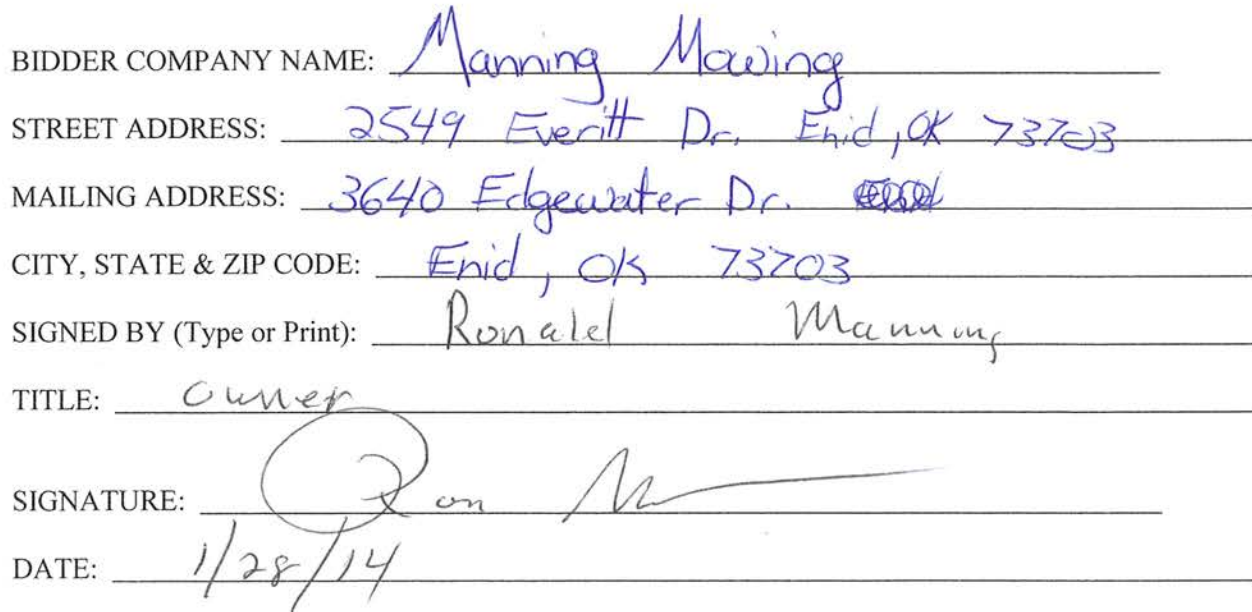 BIDDER COMPANY NAME: Manning Mowing
STREET ADDRESS: 2549 Everitt Dr. Enid, OK 73703
MAILING ADDRESS: 3640 Edgewater Dr.
CITY, STATE & ZIP CODE: Enid, OK 73703
SIGNED BY (Type or Print): Ronald Manning
TITLE: Owner
SIGNATURE: Ron M
DATE: 1/28/14